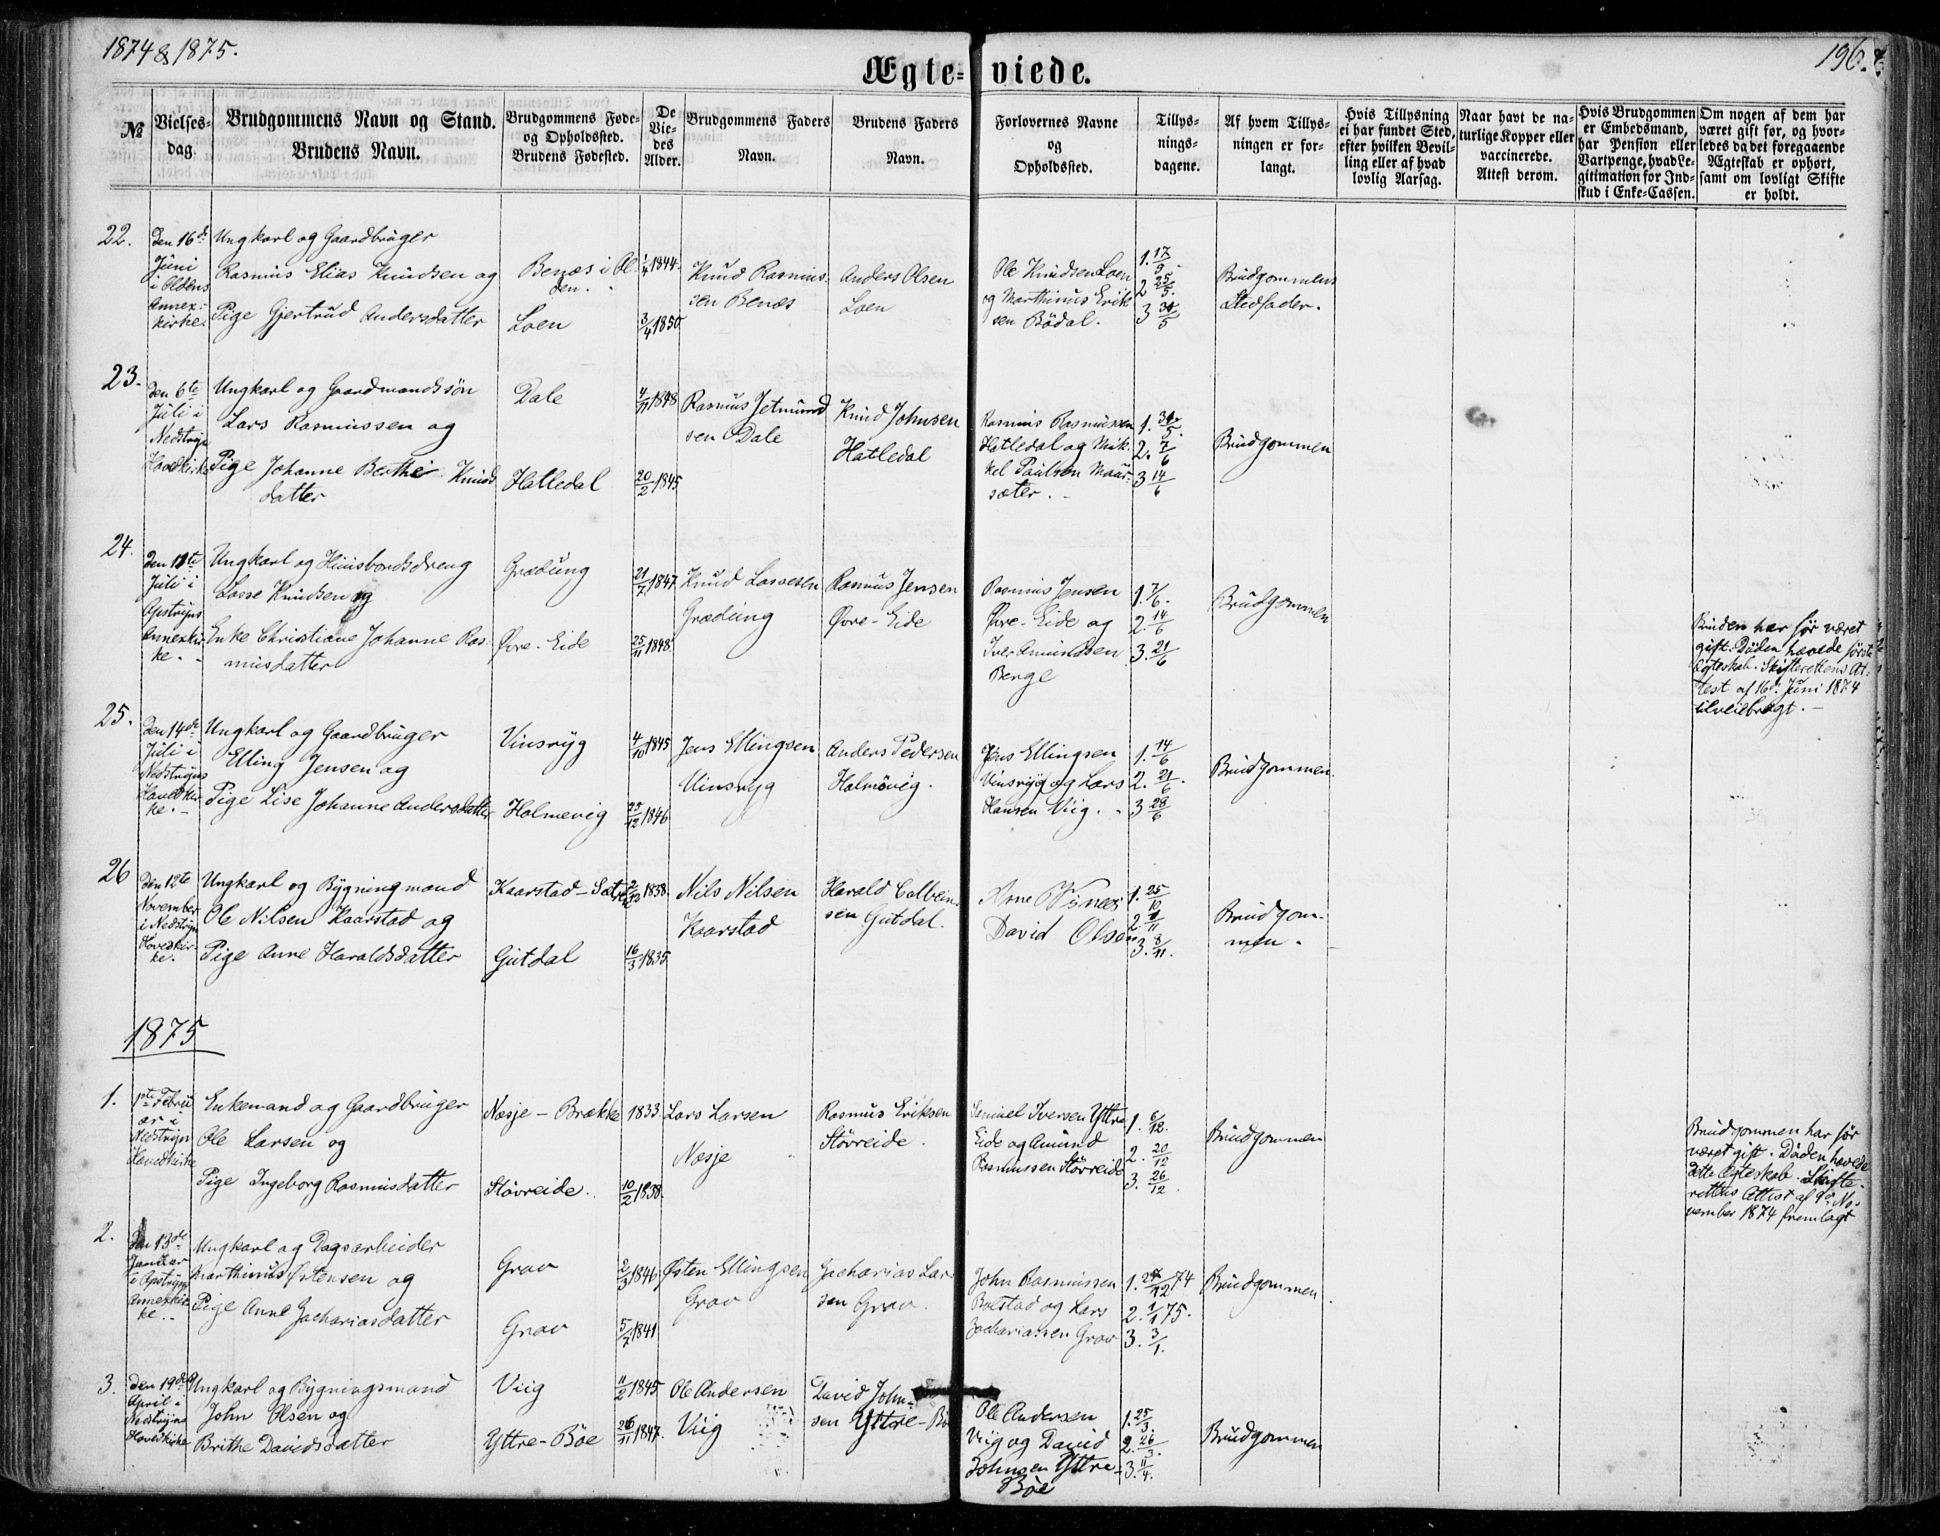 1874 & 1875.
196.
Ægte-viede.
№
Vielses-
dag.
Brudgommens Navn og Stand.
Brudens Navn.
Brudgommens Føde-
og Opholdssted.
Brudens Fødested.
De
Vie-
des
Alder.
Brudgommens Faders
Navn.
Brudens Faders
Navn.
Forlovernes Navne
og
Opholdssted.
Tillys-
nings-
dagene.
Af hvem Tillys-
ningen er for-
langt.
Hvis Tillysning
ei har fundet Sted,
efter hvilken Bevil-
ling eller af hvad
lovlig Aarsag.
Naar havt de na-
turlige Kopper eller
vaccinerede.
Attest derom.
Hvis Brudgommen
er Embedsmand,
har Pension eller
Vartpenge, hvad Le-
gitimation for Ind-
skud i Enke-Cassen.
Om nogen af dem har
været gift før, og hvor-
ledes da det foregaaende
Ægteskab er ophørt,
samt om lovligt Skifte
er holdt.
22.
Den 16de
Juni
i Oldens
Annex-
kirke.
Ungkarl og Gaardbruger
Rasmus Elias Knudsen og
Pige Gjertrud Andersdatter
Benæs i Ol-
den.
Loen
1844.
3/4 1850.
Knud Rasmus-
sen Benæs
Anders Olsen
Loen
Ole Knudsen Loen
og Marthinus Erik
sen Bødal.
1. 17/5.
2 25/5.
3 31/5
Brudgommens
Stedfader.
23.
Den 6te
Juli i
Nedstryn
Hovedkirke
Ungkarl og Gaardmandssøn
Lars Rasmussen og
Pige Johanne Berthe Knuds
datter
Dale
Hatledal
4/11 1848
20/2 1845
Rasmus Jetmund
sen Dale
Knud Johnsen
Hatledal
Rasmus Rasmussen
Hatledal og Mik-
kel Paulsen Maur-
sæter.
1. 31/5.
2. 7/6
3 14/6
Brudgommen
24.
Den 11te
Juli i
Opstryns
Annexkir-
ke.
Ungkarl og Huusbondsdreng
Lasse Knudsen og
Enke Christiane Johanne Ras-
musdatter
Grædung
Øvre-Eide
21/7 1847
25/11 1848.
Knud Lassesen
Grædung
Rasmus Jensen
Øvre-Eide
Rasmus Jensen
Øvre-Eide og
Iver Amundsen
Berge
1. 7/6.
2. 14/6
3. 21/6
Brudgommen
Bruden har før været
gift. Døden hævede første
Ægteskab. Skifterettens At-
test af 16de Juni 1874
tilveiebragt.
25.
Den 14de
Juli i
Nedstryns
Hovedkir-
ke.
Ungkarl og Gaardbruger
Elling Jensen og
Pige Lise Johanne Andersdatter
Vinsryg
Holmevig
4/10 1845
25/12 1846
Jens Ellingsen
Vinsryg
Anders Pedersen
Holmøvig.
Jens Ellingsen
Vinsryg og Lars
Hansen Viig.
1. 14/6
2. 21/6.
3 28/6
Brudgommen.
26
Den 12te
November
i Nedstryn
Hovedkir-
ke.
Ungkarl og Bygningmand
Ole Nilsen Kaarstad og
Pige Anne Haraldsdatter
Kaarstad-Sætre
Gutdal
1838.
16/3 1835
Nils Nilsen
Kaarstad
Harald Colbein
sen Gutdal.
Arne
David Olsen
1. 25/10
2. 1/11
3. 8/11.
Brudgom-
men.
1875
1.
1ste Febru
ar i
Nedstryn
Hovedkirke
Enkemand og Gaardbruger
Ole Larsen og
Pige Ingeborg Rasmusdatter
Nesje-Brække
Støvreide.
1833.
10/2 1838.
Lars Larsen
Nesje
Rasmus Eriksen
Støvreide.
Samuel Iversen Yttre
Eide og Amund
Rasmussen Støvreide
1. 6/12.
2. 20/12
3. 26/12.
Brudgommen
Brudgommen har før
været gift. Døden hævede
dette Ægteskab. Skifte-
rettens Attest af 9de No-
vember 1874 fremlagt
2.
Den 13de
Januar
i Opstryns
Annexkir-
ke.
Ungkarl og Dagsarbeider
Marthinus Østensen og
Pige Anne Zachariasdatter
Grov
Grov
2/3 1846
5/7 1841
Østen Ellingsen
Grov
Zacharias Lar-
sen Grov.
John Rasmussen
Bolstad og Lars
Zachariassen Grov
1. 27/12 74
2. 1/1 75.
3. 3/1.
Brudgommen.
3.
Den 19de
April i
Nedstryns
Hovedkirke
Ungkarl og Bygningsmand
John Olsen og
Brithe Davidsdatter
Viig
Yttre-Bøe
11/2 1845
26/11 1847.
Ole Andersen
Viig
David John-
sen Yttre-Bø
Ole Andersen
Viig og David
Johnsen Yttre-
Bøe
1. 25/3
2. 26/3.
3. 11/4.
Brudgommen